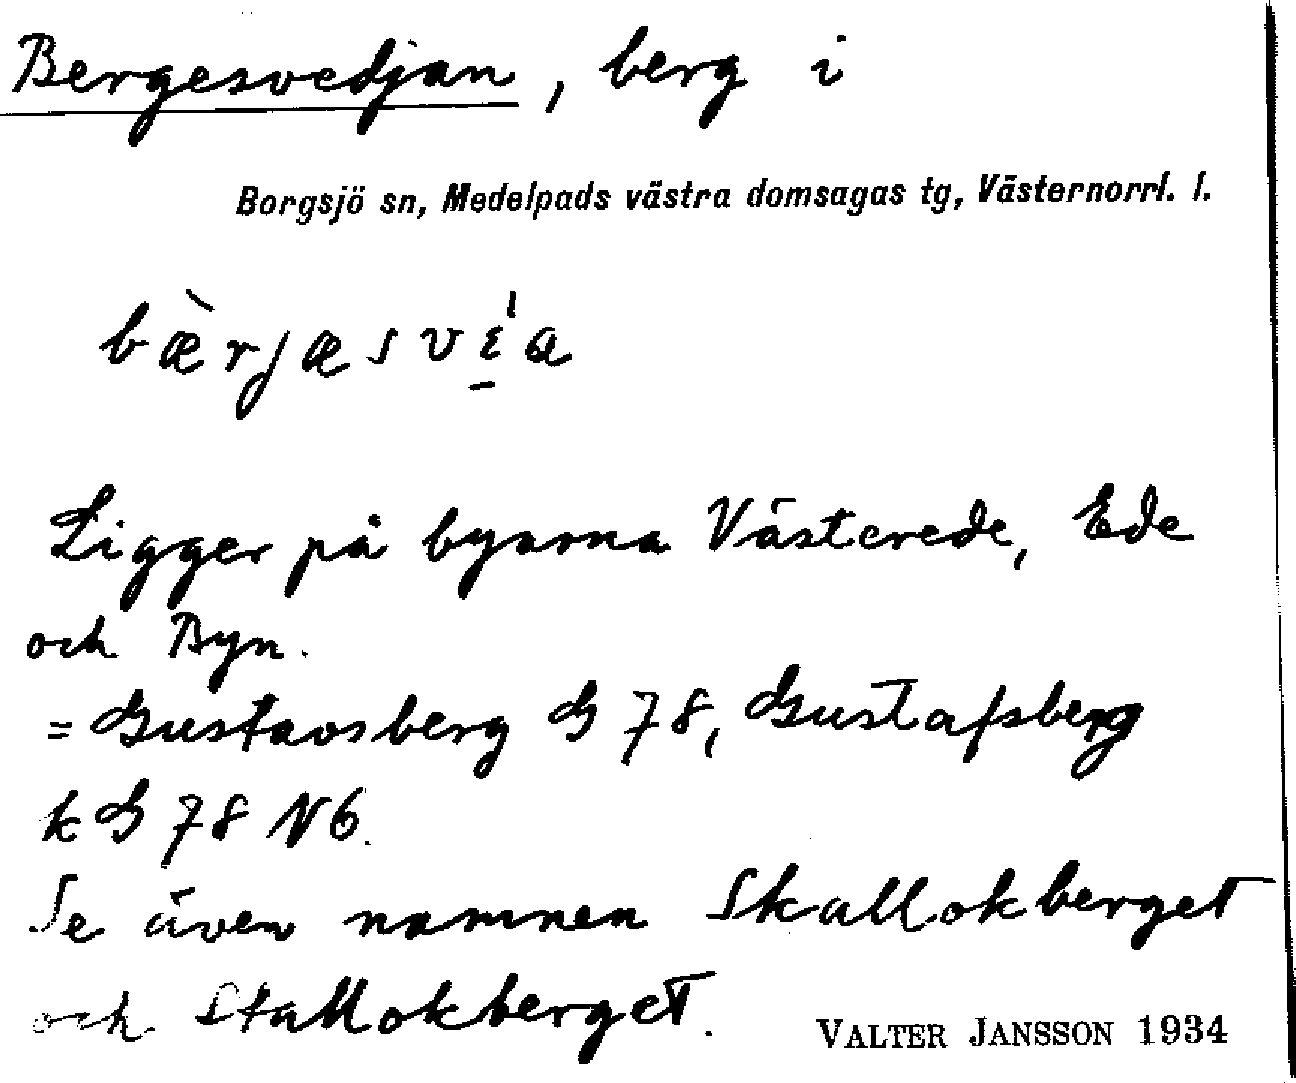 Bergesvedjan, berg i
Borgsjö sn, Medelpads västra domsagas tg, Västernorrl. l.
bæ̀rjæsvɛ̠́a
Ligger på byarna Västerede, Ede
och Byn.
= Gustavsberg G 78, Gustafsberg
k G 78 N6.
Se även namnen Skallokberget
och Stallokberget.
VALTER JANSSON 1934